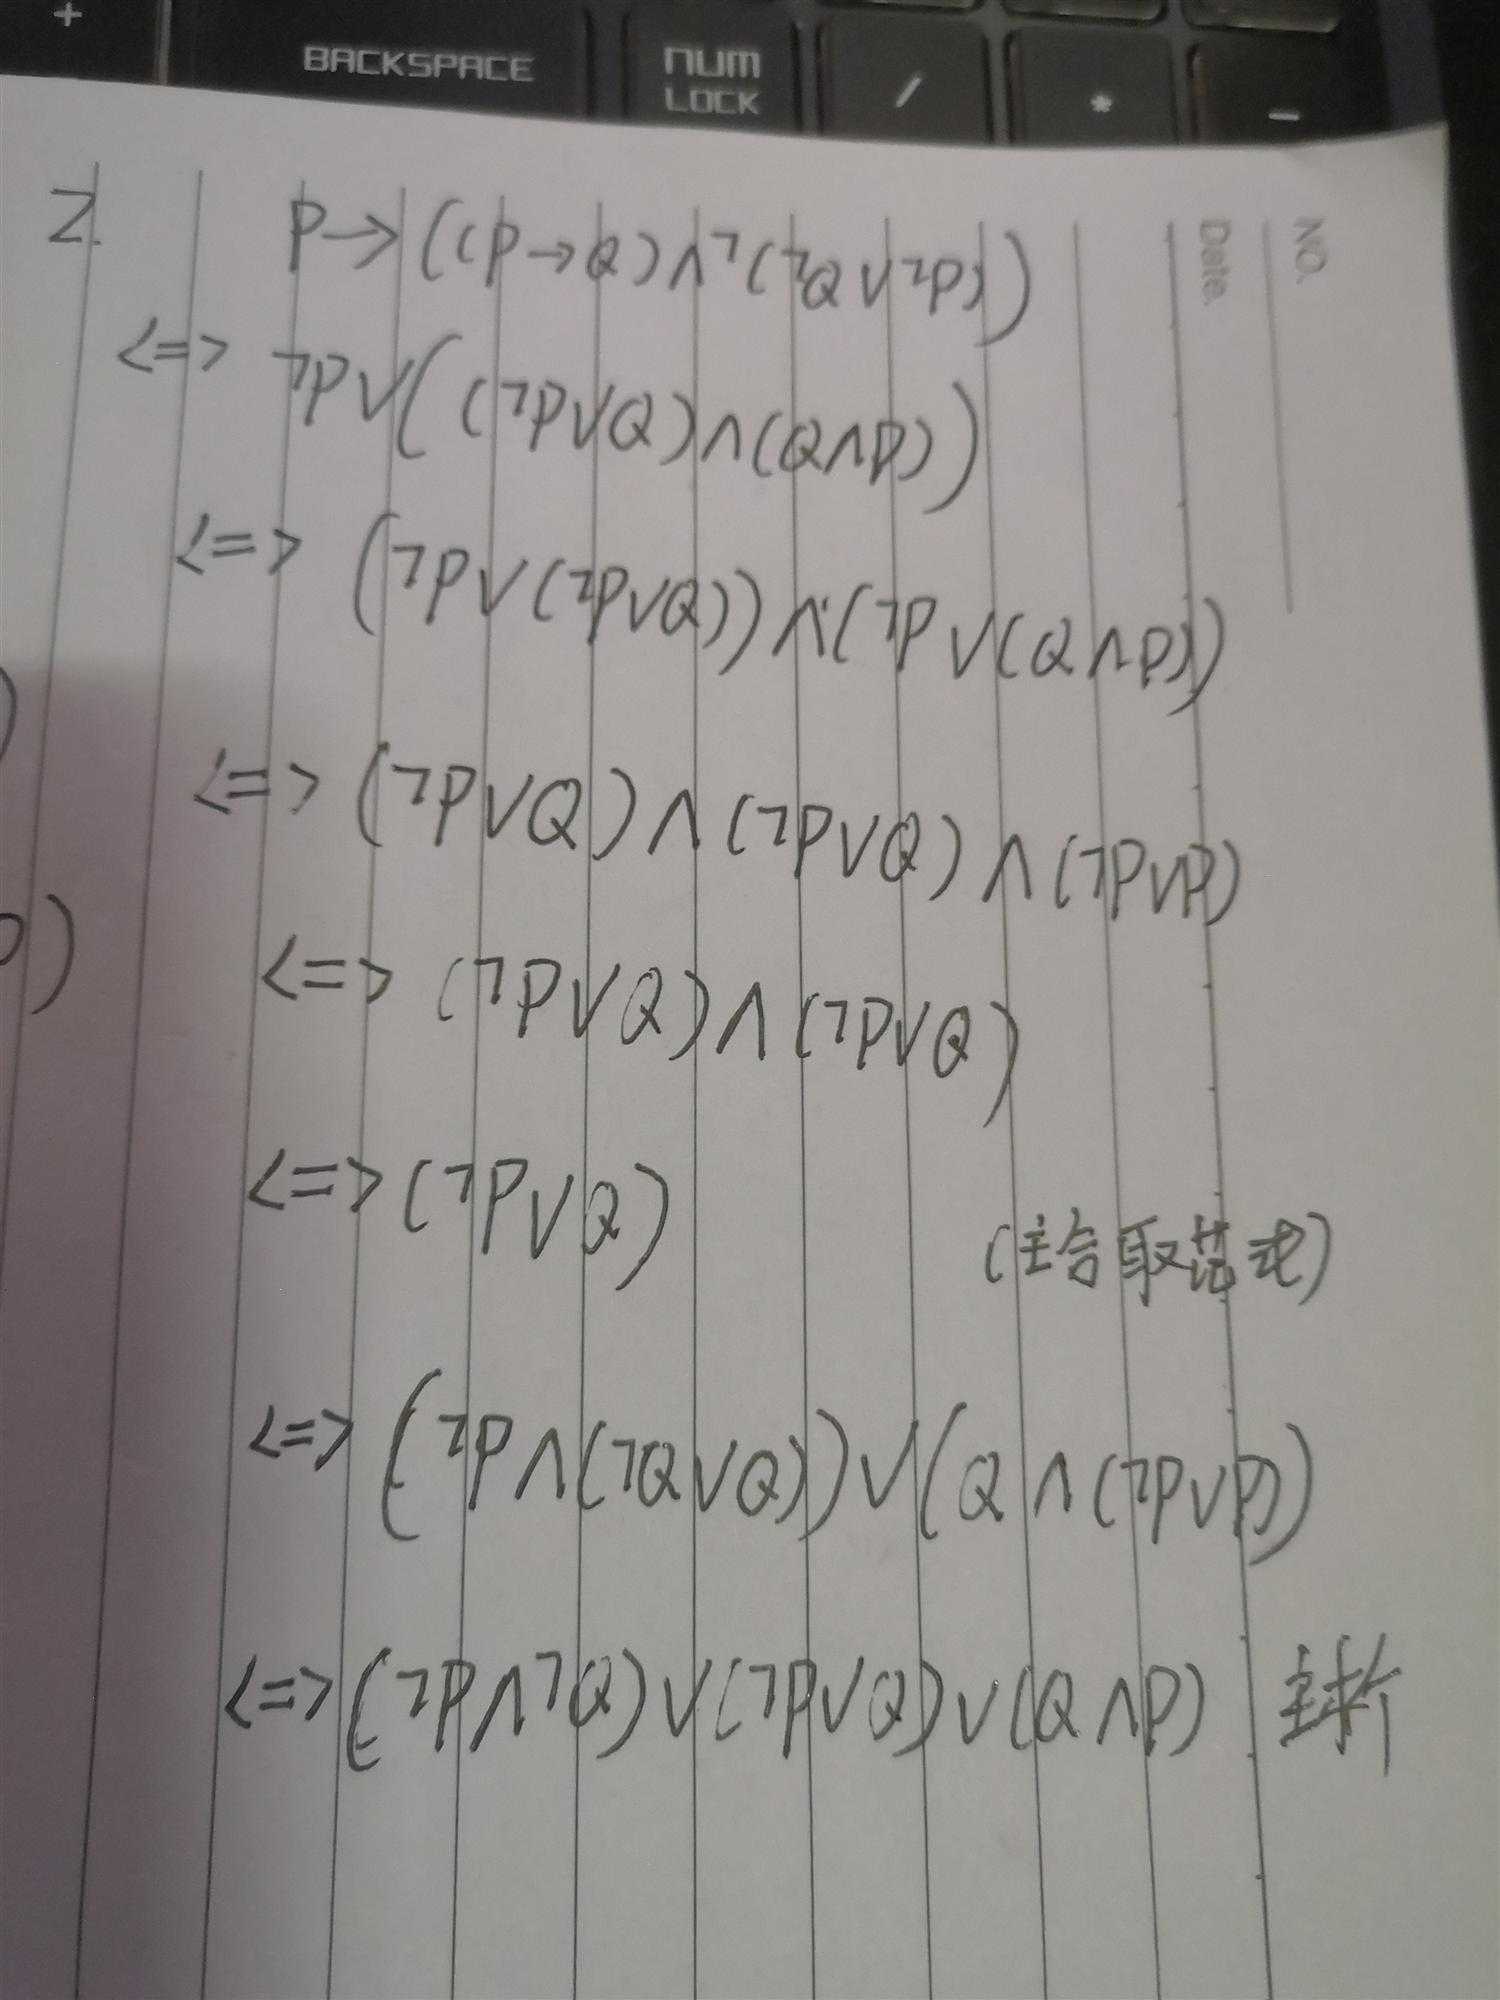 + BACKSPACE NUM LOCK / * -
NO.
Date.
2. P→((P→Q)∧¬(¬Q∨¬P))
<=> ¬P∨((¬P∨Q)∧(Q∧P))
<=> (¬P∨(¬P∨Q))∧(¬P∨(Q∧P))
)
<=> (¬P∨Q)∧(¬P∨Q)∧(¬P∨P)
)
<=> (¬P∨Q)∧(¬P∨Q)
<=> (¬P∨Q) (主合取范式)
<=> (¬P∧(¬Q∨Q))∨(Q∧(¬P∨P))
<=> (¬P∧¬Q)∨(¬P∨Q)∨(Q∧P) 主析